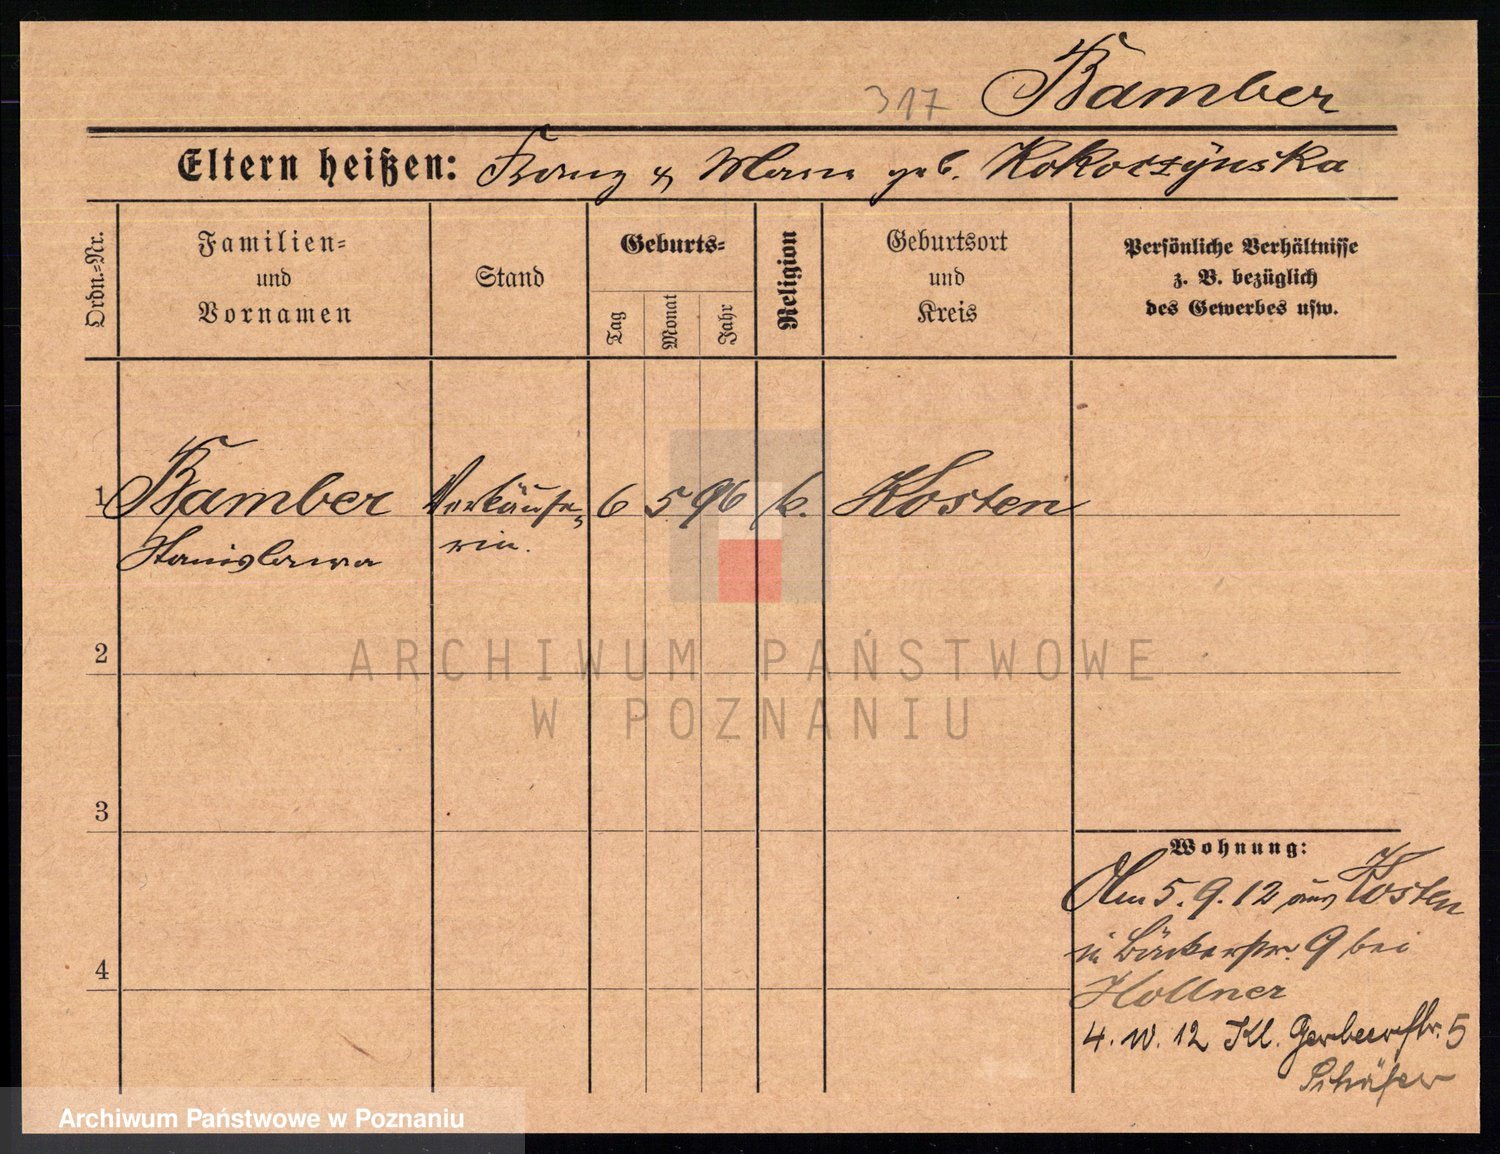 317 Bamber
Eltern heißen: Franz & Maria geb. Kokorzynska
Ordn.=Nr.
Familien=
und
Vornamen
Stand
Geburts=
Tag
Monat
Jahr
Religion
Geburtsort
und
Kreis
Persönliche Verhältnisse
z. B. bezüglich
des Gewerbes usw.
1 Bamber Verkäufe= 6 5 96 k. Kosten
Stanislawa rin.
2
3
4
Wohnung:
Am 5. 9. 12 aus Kosten
in Bäckerstr. 9 bei
Hollner
4. 10. 12 Kl. Gerberstr. 5
Schäfer
ARCHIWUM PAŃSTWOWE
W POZNANIU
Archiwum Państwowe w Poznaniu